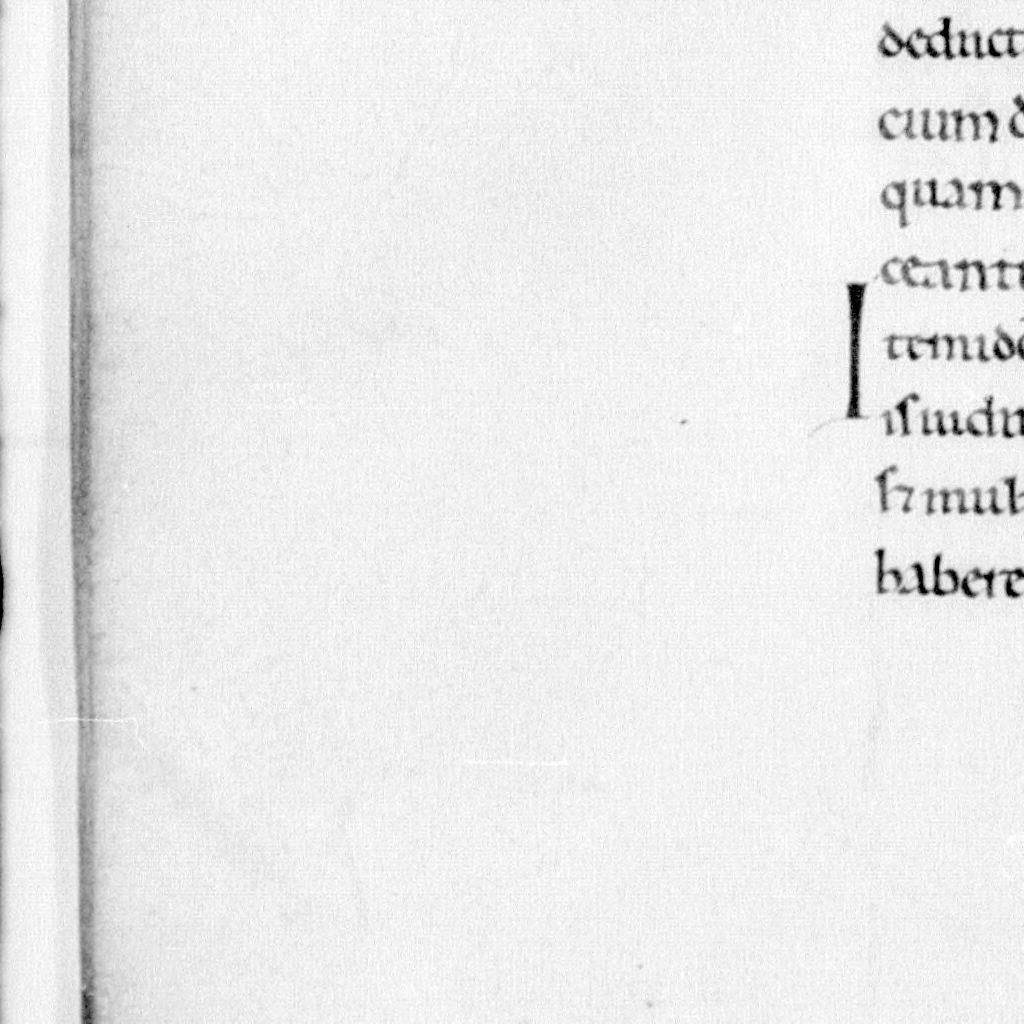 deduct
cium
quam
ceant
I temide
is iudi
sz mul
habere